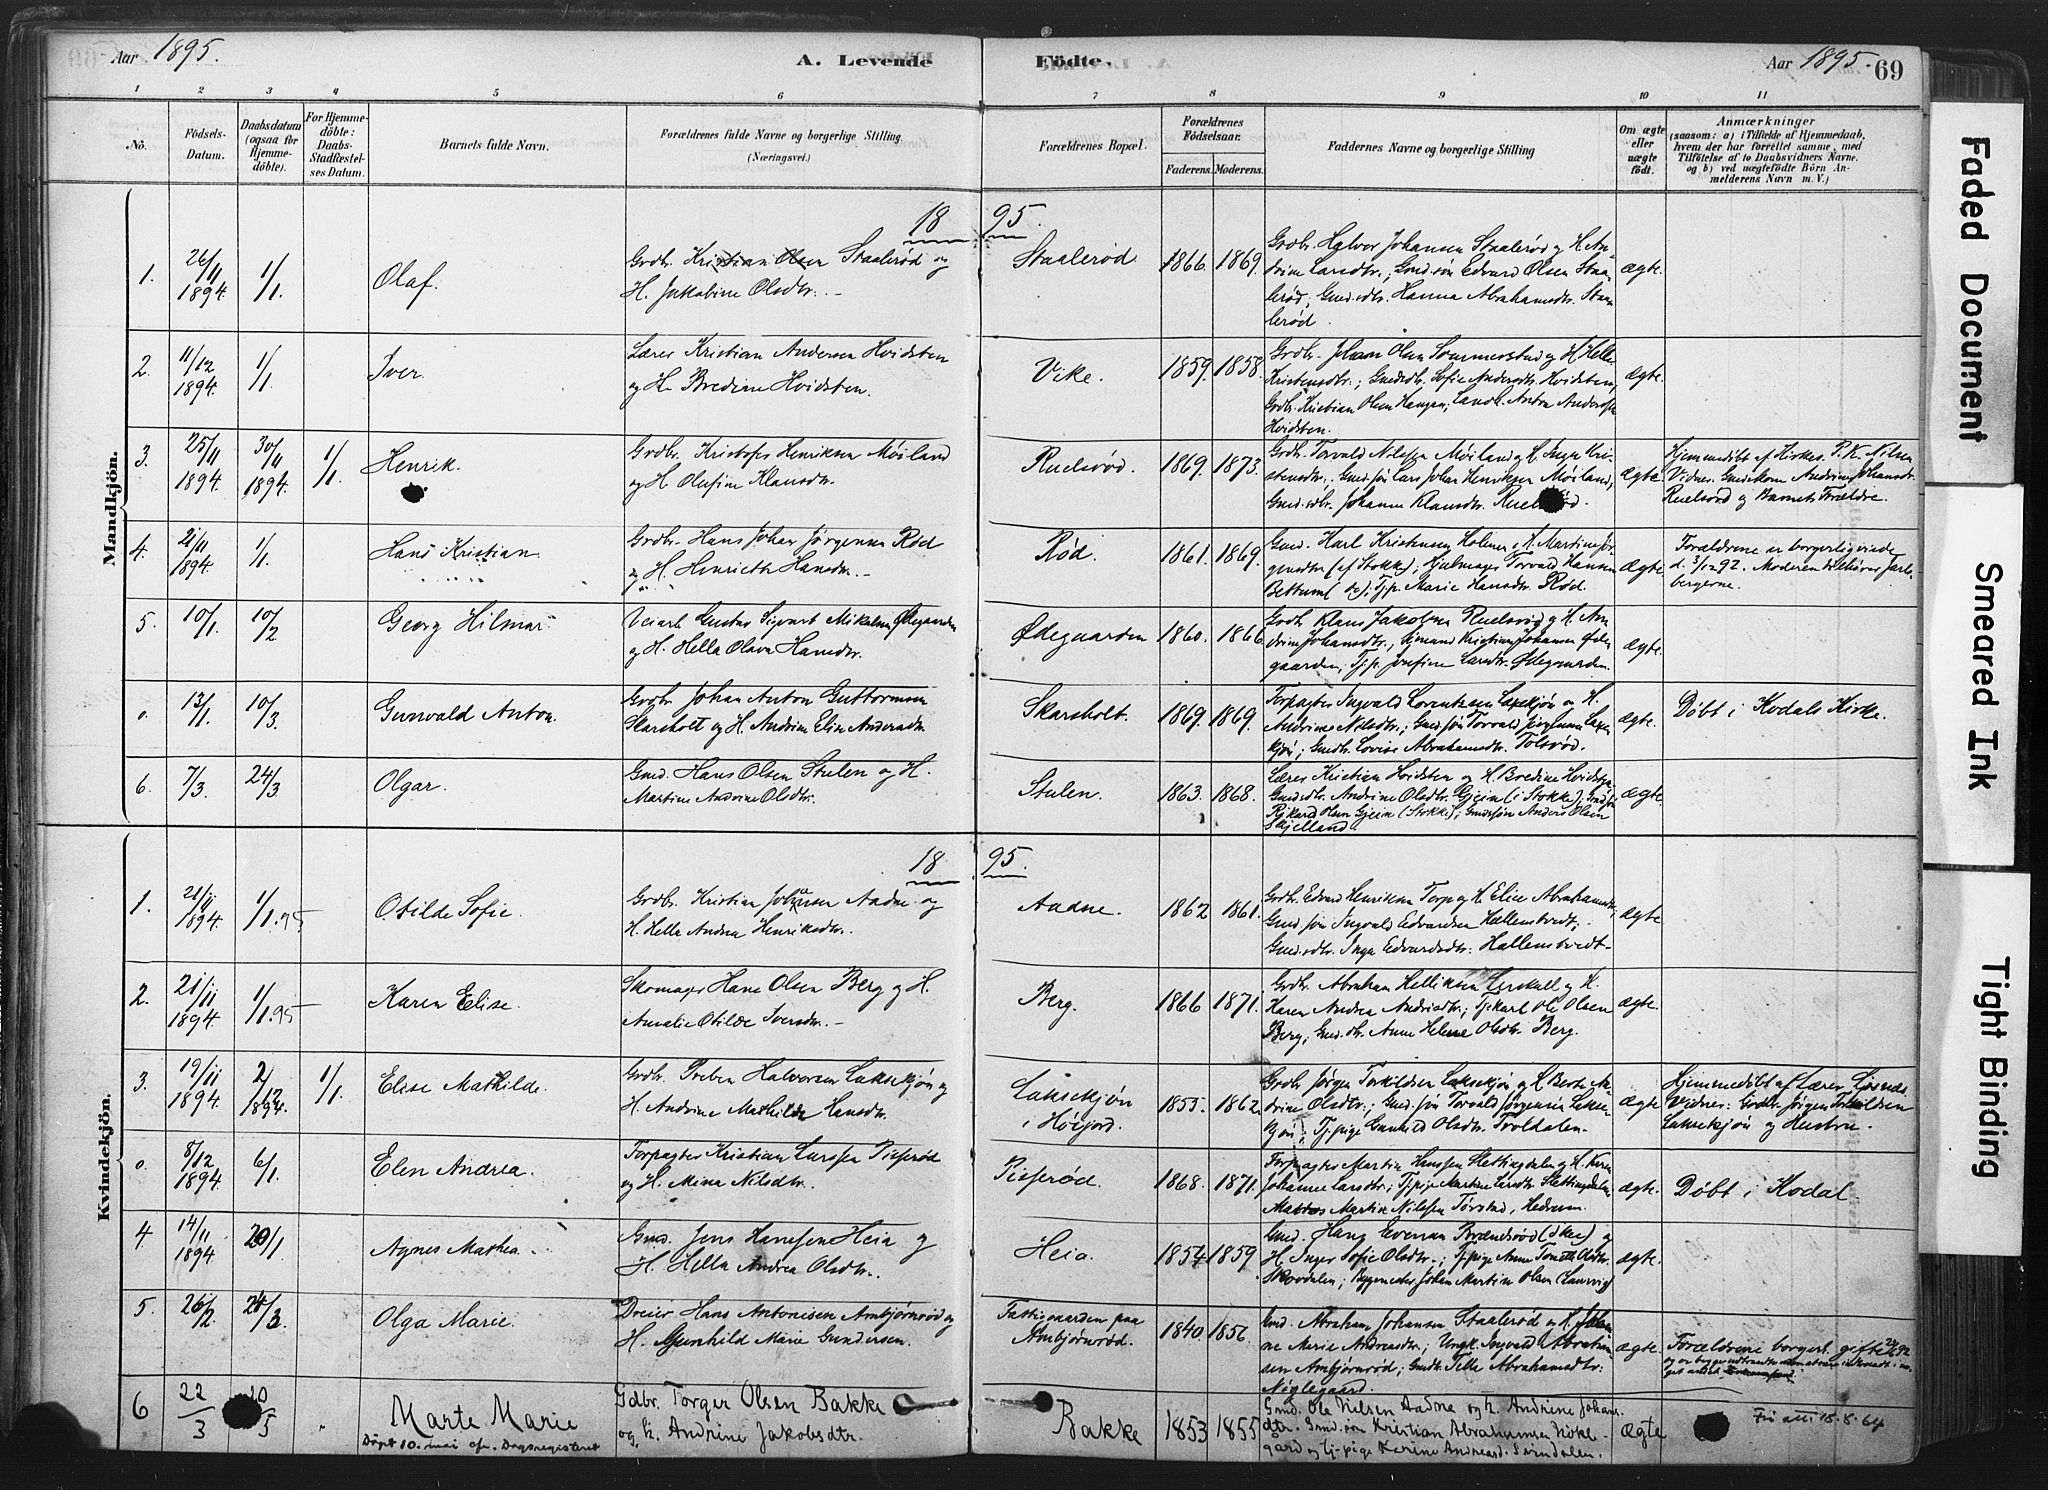 Aar 1895.
A. Levende Födte.
Aar 1895.
69
1 2 3 4 5 6 7 8 9 10 11
No.
Födsels-Datum.
Daabsdatum (ogsaa for Hjemmedöbte).
For Hjemmedöbte: Daabs-Stadfæstelses Datum.
Barnets fulde Navn.
Forældrenes fulde Navne og borgerlige Stilling.
(Næringsvei.)
Forældrenes Bopæl.
Forældrenes Födselsaar.
Faderens. Moderens.
Faddernes Navne og borgerlige Stilling
Om ægte eller uægte födt.
Anmærkninger
(saasom: a) i Tilfælde af Hjemmedaab,
hvem der har forrettet samme, med
Tilföielse af to Daabsvidners Navne.
og b) ved uægtefödte Börn Anmelderens Navn m. V.)
Mandkjön.
18 95.
1. 26/11 1894. 1/1. Olaf.
Grdbr. Kristian Olsen Staalerød og
H. Jakobine Olsdtr. —
Staalerød. 1866. 1869.
Grdbr. Halvor Johansen Staalerød og H. An-
drine Larsdtr.; Gmd.søn Edvard Olsen Staa-
lerød; Gmd.sdtr. Hanna Abrahamsdtr. Staa-
lerød.
Ægte.
2. 11/12 1894. 1/1. Iver.
Lærer Kristian Andersen Hvidsten
og H. Bredine Hvidsten.
Vike. 1859. 1858.
Grdbr. Johan Olsen Sommerstad og H. Helle
Kristensdtr.; Gmdsdtr. Sofie Andersdtr. Hvidsten,
Grdbr. Kristian Olsen Haugen; Landh. Anton Andersen
Hvidsten.
Ægte.
3. 25/11 1894. 30/11 1894. 1/1. Henrik.
Grdbr. Kristofer Henriksen Møiland
og H. Olufine Klausdtr.
Ruelsrød. 1869. 1873.
Grdbr. Torvald Nilssen Møiland og H. Inga Kri-
stensdtr.; Gmd.søn Lars Johan Henriksen Møiland,
Gmd.sdtr. Johanne Klausdtr. Ruelsrød.
Ægte.
Hjemmedöbt af Kirkes. P. K. Nilsen
Vidner: Gmdskone Andrine Johansdtr.
Ruelsrød og Barnets Forældre.
4. 21/11 1894. 1/1. Hans Kristian.
Grdbr. Hans Johan Jørgensen Rød
og H. Henriette Hansdtr. —
Rød. 1861. 1869.
Gmd. Karl Kristensen Holmen, H. Martine Jør-
gensdtr. (af Stokke); Hjulmager Torvald Hansen
Bettum (do); Tj.p. Marie Hansdtr. Rød.
Ægte.
Forældrene er borgerlig viede
d. 3/12 92. Moderen tilhører Jarls-
bergerne.
5. 10/1. 10/2 Georg Hilmar.
Veiarb. Gustav Sigvart Mikalsen Ødegaarden
og H. Hella Olava Hansdtr.
Ødegaarden 1860. 1866.
Grdb. Klaus Jakobsen Ruelsrød og H. An-
drine Johansdtr., Sjømand Kristian Johansen Øde-
gaarden, Tj.p. Josefine Larsdtr. Ødegaarden.
Ægte.
0. 13/1. 10/3. Gunvald Anton.
Grdbr. Johan Anton Guttormsen
Skarsholt og H. Andrine Elise Andersdtr.
Skarsholt. 1869. 1869.
Forpagter Ingvald Lorentzsen Lakskjøn og H.
Andrine Nilsdtr.; Gmd.søn Torvald Jørgensen Laks-
kjøn; Gmdtr. Lovise Abrahamsdtr. Tolsrød.
Ægte.
Døbt i Kodals Kirke.
6. 7/3. 24/3. Olgar.
Gmd. Hans Olsen Stulen og H.
Martine Andrine Olsdtr.
Stulen. 1863. 1868.
Lærer Kristian Hvidsten og H. Bredine Hvidsten,
Gmdsdtr. Andrine Olsdtr. Gjein (i Stokke); Gmdsøn
Rikard Olsen Gjein (Stokke); Gmdsøn Anders Olsen
Skjelland.
Ægte.
Kvindekjön.
18 95.
1. 21/11 1894. 1/1.95 Otilde Sofie.
Grdbr. Kristian Johansen Aadne og
H. Hella Andrea Henriksdtr.
Aadne. 1862 1861.
Grdb. Edvard Henriksen Torp og H. Elise Abrahamsdtr.,
Gmd.søn Ingvald Edvardsen Hallenstvedt;
Gmd.sdtr. Inga Edvardsdtr. Hallenstvedt.
Ægte.
2. 21/11 1894. 1/1.95 Karen Elise.
Skomager Hans Olsen Berg og H.
Amalie Otilde Iversdtr. —
Berg. 1866 1871.
Grdb. Abraham Helliksen Lerskall og H.
Karen Andrea Andersdtr.; Tj.karl Ole Olsen
Berg; Gmd.dtr. Anne Helene Olsdtr. Berg.
Ægte.
3. 19/11 1894. 2/12 1894. 1/1. Elise Mathilde.
Grdbr. Preben Halvorsen Lakskjøn og
H. Andrine Mathilde Hansdtr.
Lakskjøn
i Höijord. 1855. 1862.
Grdbr Jørgen Torkildsen Lakskjøn og H. Berte An-
drine Olsdtr.; Gmd.søn Torvald Jørgensen Laks-
kjøn; Tj.pige Gunhild Olsdtr. Troldalen.
Ægte.
Hjemmedöbt af Lærer Løsnæs.
Vidner: Grdbr. Jørgen Torkildsen
Lakskjøn og Hustru.
0. 8/12 1894. 6/1. Elen Andrea.
Forpagter Kristian Larssen Pisserød
og H. Mina Nilsdtr.
Pisserød. 1868. 1871.
Forpagter Martin Hanssen Slettingdalen og H. Karen
Johanne Larsdtr.; Tj.pige Martine Larsdtr. Slettingdalen,
Martin Nilssen Törstad, Hedrum.
Ægte.
Døbt i Kodal
4. 14/11 1894. 20/1. Agnes Mathea.
Gmd. Jens Hanssen Heia og
H. Hella Andrea Olsdtr.
Heia. 1854 1859.
Gmd. Hans Evensen Brændsrød (Ske) og
H. Inger Sofie Olsdtr.; Tj.pige Anne Tonette Olsdtr.
Skovdalen; Byggmester Johan Martin Olsen (Laurvig)
Ægte.
5. 26/2. 24/3 Olga Marie.
Dreier Hans Antonisen Ambjørnrød og
H. Gunhild Marie Gundersen.
Fattiggaarden paa
Ambjørnrød. 1840. 1856.
Gmd. Abraham Johansen Staalerød og H. Johan-
ne Marie Andreasdtr.; Ungk. Ingvald Abraham-
sen Ambjørnrød; Gmdtr. Tille Abrahamsdtr.
Nøglegaard.
Ægte.
Forældrene borgerl. gifte
6 22/3 20/5 Marte Marie
Døpt 10. mai cfr. Dagsregisteret
Gdbr. Torger Olsen Bakke
og h. Andrine Jakobsdtr.
Bakke 1853 1855
Gmd. Ole Nilsen Aadne og h. Andrine Johans-
dtr. Gmd.søn Kristian Abrahamsen Nökle-
gaard og tj.pige Karine Andreasd. Svindalen.
Ægte
Fri att 15-8-64
Faded Document
Smeared Ink
Tight Binding